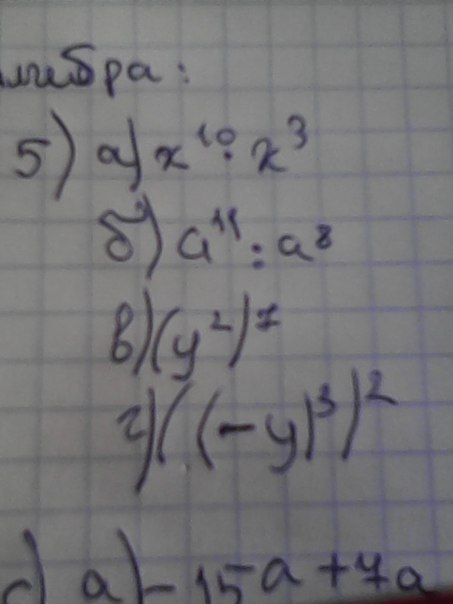 лгебра:
5) а) x¹⁰ · x³
б) a¹¹ : a⁸
в) (y²)⁷
г) ((-y)³)²
а) - 15a + 7a